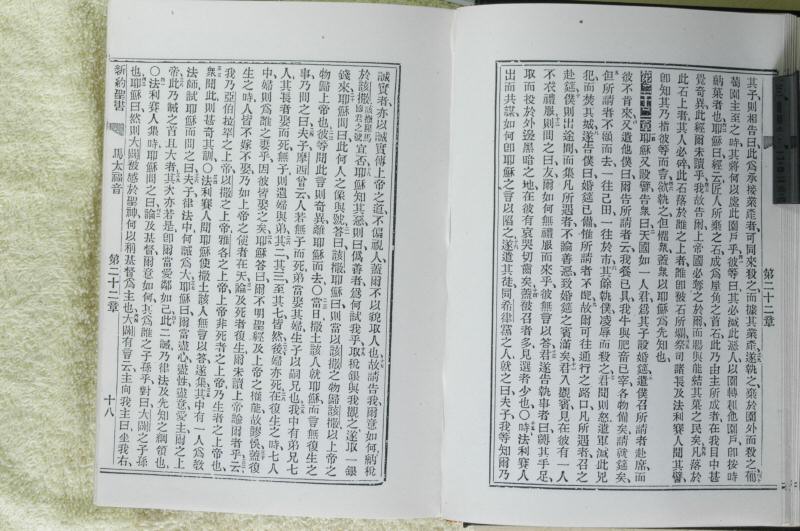 第二十二章
其子則相告曰此爲承接業產者可同來殺之而據其業產遂執之棄於園外而殺之葡
萄園主至之時其將何以處此園戶乎彼等曰其必滅此惡人以園轉租他園戶卽按時
納菓者也耶穌曰經云匠人所棄之石成爲屋角之首石此乃由主所成者在我目中甚
覺奇異此經爾未讀乎我故告爾上帝國必奪之於爾而賜與能結其菓之民矣凡落於
此石上者其人必碎此石落於誰之上者誰卽被石所爛祭司諸長及法利賽人聞其譬
卽知其乃指彼等而言欲執之但懼衆蓋衆以耶穌爲先知也
第二十二章耶穌又設譬告衆曰天國如一人君爲其子設婚筵遣僕召所請者赴席而
彼不肯來又遣他僕曰爾告所請者云我餐已具我牛與肥畜已宰各物備矣請就筵矣
但所請者不顧而去一往己田一往於市其餘執僕凌辱而殺之君聞則怒遣軍滅此兇
犯而焚其城遂告僕曰婚筵已備惟所請者不配故爾可往通行之路口凡所遇者召之
赴筵僕則出途間而集凡所遇者不論善惡致婚筵之賓滿矣君入觀賓見在彼有一人
不衣禮服則問之曰友爾如何無禮服而來乎彼無言以答君遂告執事者曰縛其手足
取而投於外邊黑暗之地在彼有哀哭切齒矣蓋被召者多見選者少也○時法利賽人
出而共謀如何卽耶穌之言以陷之遂遣其徒同希律黨之人就之曰夫子我等知爾乃
誠實者亦以誠實傳上帝之道不偏視人蓋爾不以貌取人也故請告我爾意如何納稅
於該撒宜否耶穌知其惡則曰僞善者爲何試我乎取稅銀與我觀之遂取一銀
錢來耶穌問曰此何人之像與號答曰該撒耶穌曰則當以該撒之物歸該撒以上帝之
物歸上帝也彼等聞此言則奇異離耶穌而去○當日撒土該人就耶穌而言無復生之
事乃問之曰夫子摩西曾云人若無子而死弟當娶其婦生子以嗣兄也我中有弟兄七
人其長者娶而死無子則遺婦與弟其二其三至其七皆然後婦亦死在復生之時七人
中婦則爲誰之妻乎因彼皆娶之矣耶穌答曰爾不明聖經及上帝之權能故謬悞蓋復
生之時人皆不嫁不娶乃如上帝之使者在天論及死者復生爾未讀上帝諭爾者乎云
我乃亞伯拉罕之上帝以撒之上帝雅各之上帝上帝非死者之上帝乃生者之上帝也
衆聞此則甚奇其訓○法利賽人聞耶穌使撒土該人無言以答遂集其中有一人爲敎
法師試耶穌而問之曰夫子律法中何誡爲大耶穌曰爾當盡心盡性盡意愛主爾之上
帝此乃誡之首且大者其次亦若是卽爾當愛鄰如己此二誡乃律法及先知之綱領也
○法利賽人集時耶穌問之曰論及基督爾意如何其爲誰之子孫乎對曰大闢之子孫
也耶穌曰然則大闢被感於聖神何以稱基督爲主也大闢有言云主向我主曰坐我右
新約聖書
馬太福音
第二十二章
十八